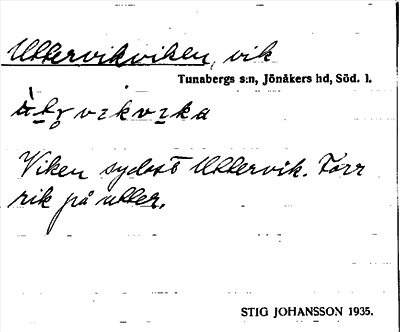 Uttervikviken, vik
Tunabergs s:n, Jönåkers hd, Söd. l.
Viken sydost Uttervik. Förr
rik på utter.
STIG JOHANSSON 1935.